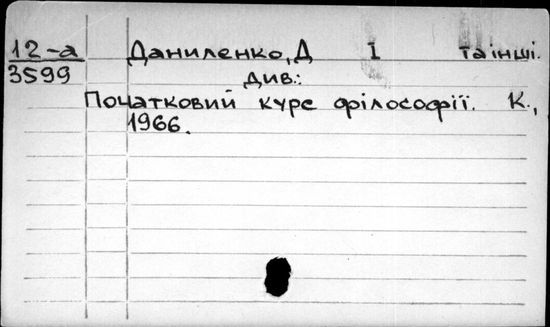 12-а Даниленко, Д І та інші.
3599 див.:
Початковий курс філософії. К.,
1966.